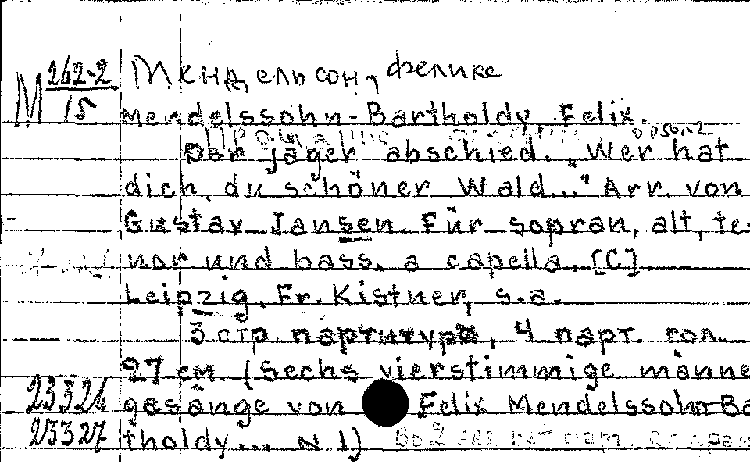 М 262-2/15 Мендельсон, Феликс
Mendelssohn-Bartholdy, Felix.
Der jäger abschied. "Wer hat
dich, du schöner Wald..." Arr. von
Gustav Jansen. Für sopran, alt, te-
nor und bass, a capella. [C]
Leipzig, Fr. Kistner, s.a.
3 стр партитура, 4 парт. гол.
27 см. (Sechs vierstimmige männe
23326 gesänge von Felix Mendelssohn-Ba
23327 tholdy... N 1)